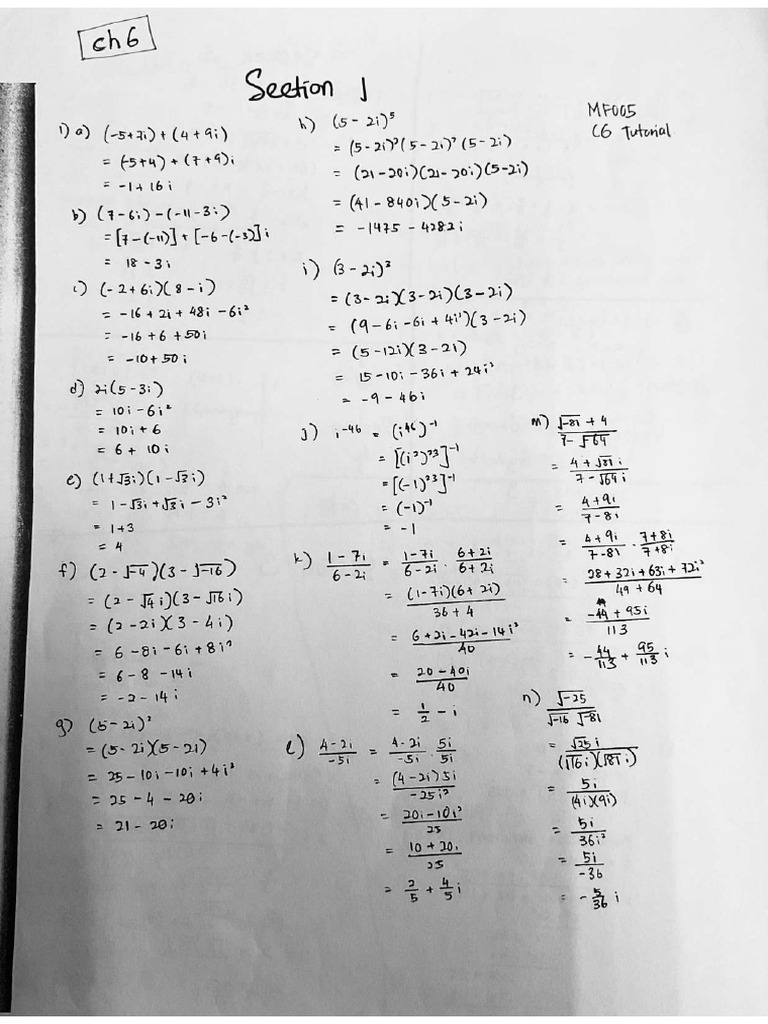 ch 6
Section 1
MF005
C6 Tutorial
1) a) (-5+7i) + (4+9i)
= (-5+4) + (7+9)i
= -1+16i
b) (7-6i) - (-11-3i)
= [7-(-11)] + [-6-(-3)]i
= 18-3i
c) (-2+6i)(8-i)
= -16+2i+48i-6i²
= -16+6+50i
= -10+50i
d) 2i(5-3i)
= 10i-6i²
= 10i+6
= 6+10i
e) (1+√3i)(1-√3i)
= 1-√3i+√3i-3i²
= 1+3
= 4
f) (2-√-4)(3-√-16)
= (2-√4i)(3-√16i)
= (2-2i)(3-4i)
= 6-8i-6i+8i²
= 6-8-14i
= -2-14i
g) (5-2i)²
= (5-2i)(5-2i)
= 25-10i-10i+4i²
= 25-4-20i
= 21-20i
h) (5-2i)⁵
= (5-2i)²(5-2i)²(5-2i)
= (21-20i)(21-20i)(5-2i)
= (41-840i)(5-2i)
= -1475-4282i
i) (3-2i)³
= (3-2i)(3-2i)(3-2i)
= (9-6i-6i+4i²)(3-2i)
= (5-12i)(3-2i)
= 15-10i-36i+24i²
= -9-46i
j) i⁻⁴⁶ = (i⁴⁶)⁻¹
= [(i²)²³]⁻¹
= [(-1)²³]⁻¹
= (-1)⁻¹
= -1
k) (1-7i)/(6-2i) = (1-7i)/(6-2i) · (6+2i)/(6+2i)
= (1-7i)(6+2i)/(36+4)
= (6+2i-42i-14i²)/40
= (20-40i)/40
= 1/2 - i
l) (4-2i)/(-5i) = (4-2i)/(-5i) · 5i/5i
= (4-2i)5i/(-25i²)
= (20i-10i²)/25
= (10+20i)/25
= 2/5 + 4/5 i
m) (√-81+4)/(7-√-64)
= (4+√81i)/(7-√64i)
= (4+9i)/(7-8i)
= (4+9i)/(7-8i) · (7+8i)/(7+8i)
= (28+32i+63i+72i²)/(49+64)
= (-44+95i)/113
= -44/113 + 95/113 i
n) √-25/(√-16 √-81)
= √25i/((√16i)(√81i))
= 5i/((4i)(9i))
= 5i/(36i²)
= 5i/(-36)
= -5/36 i